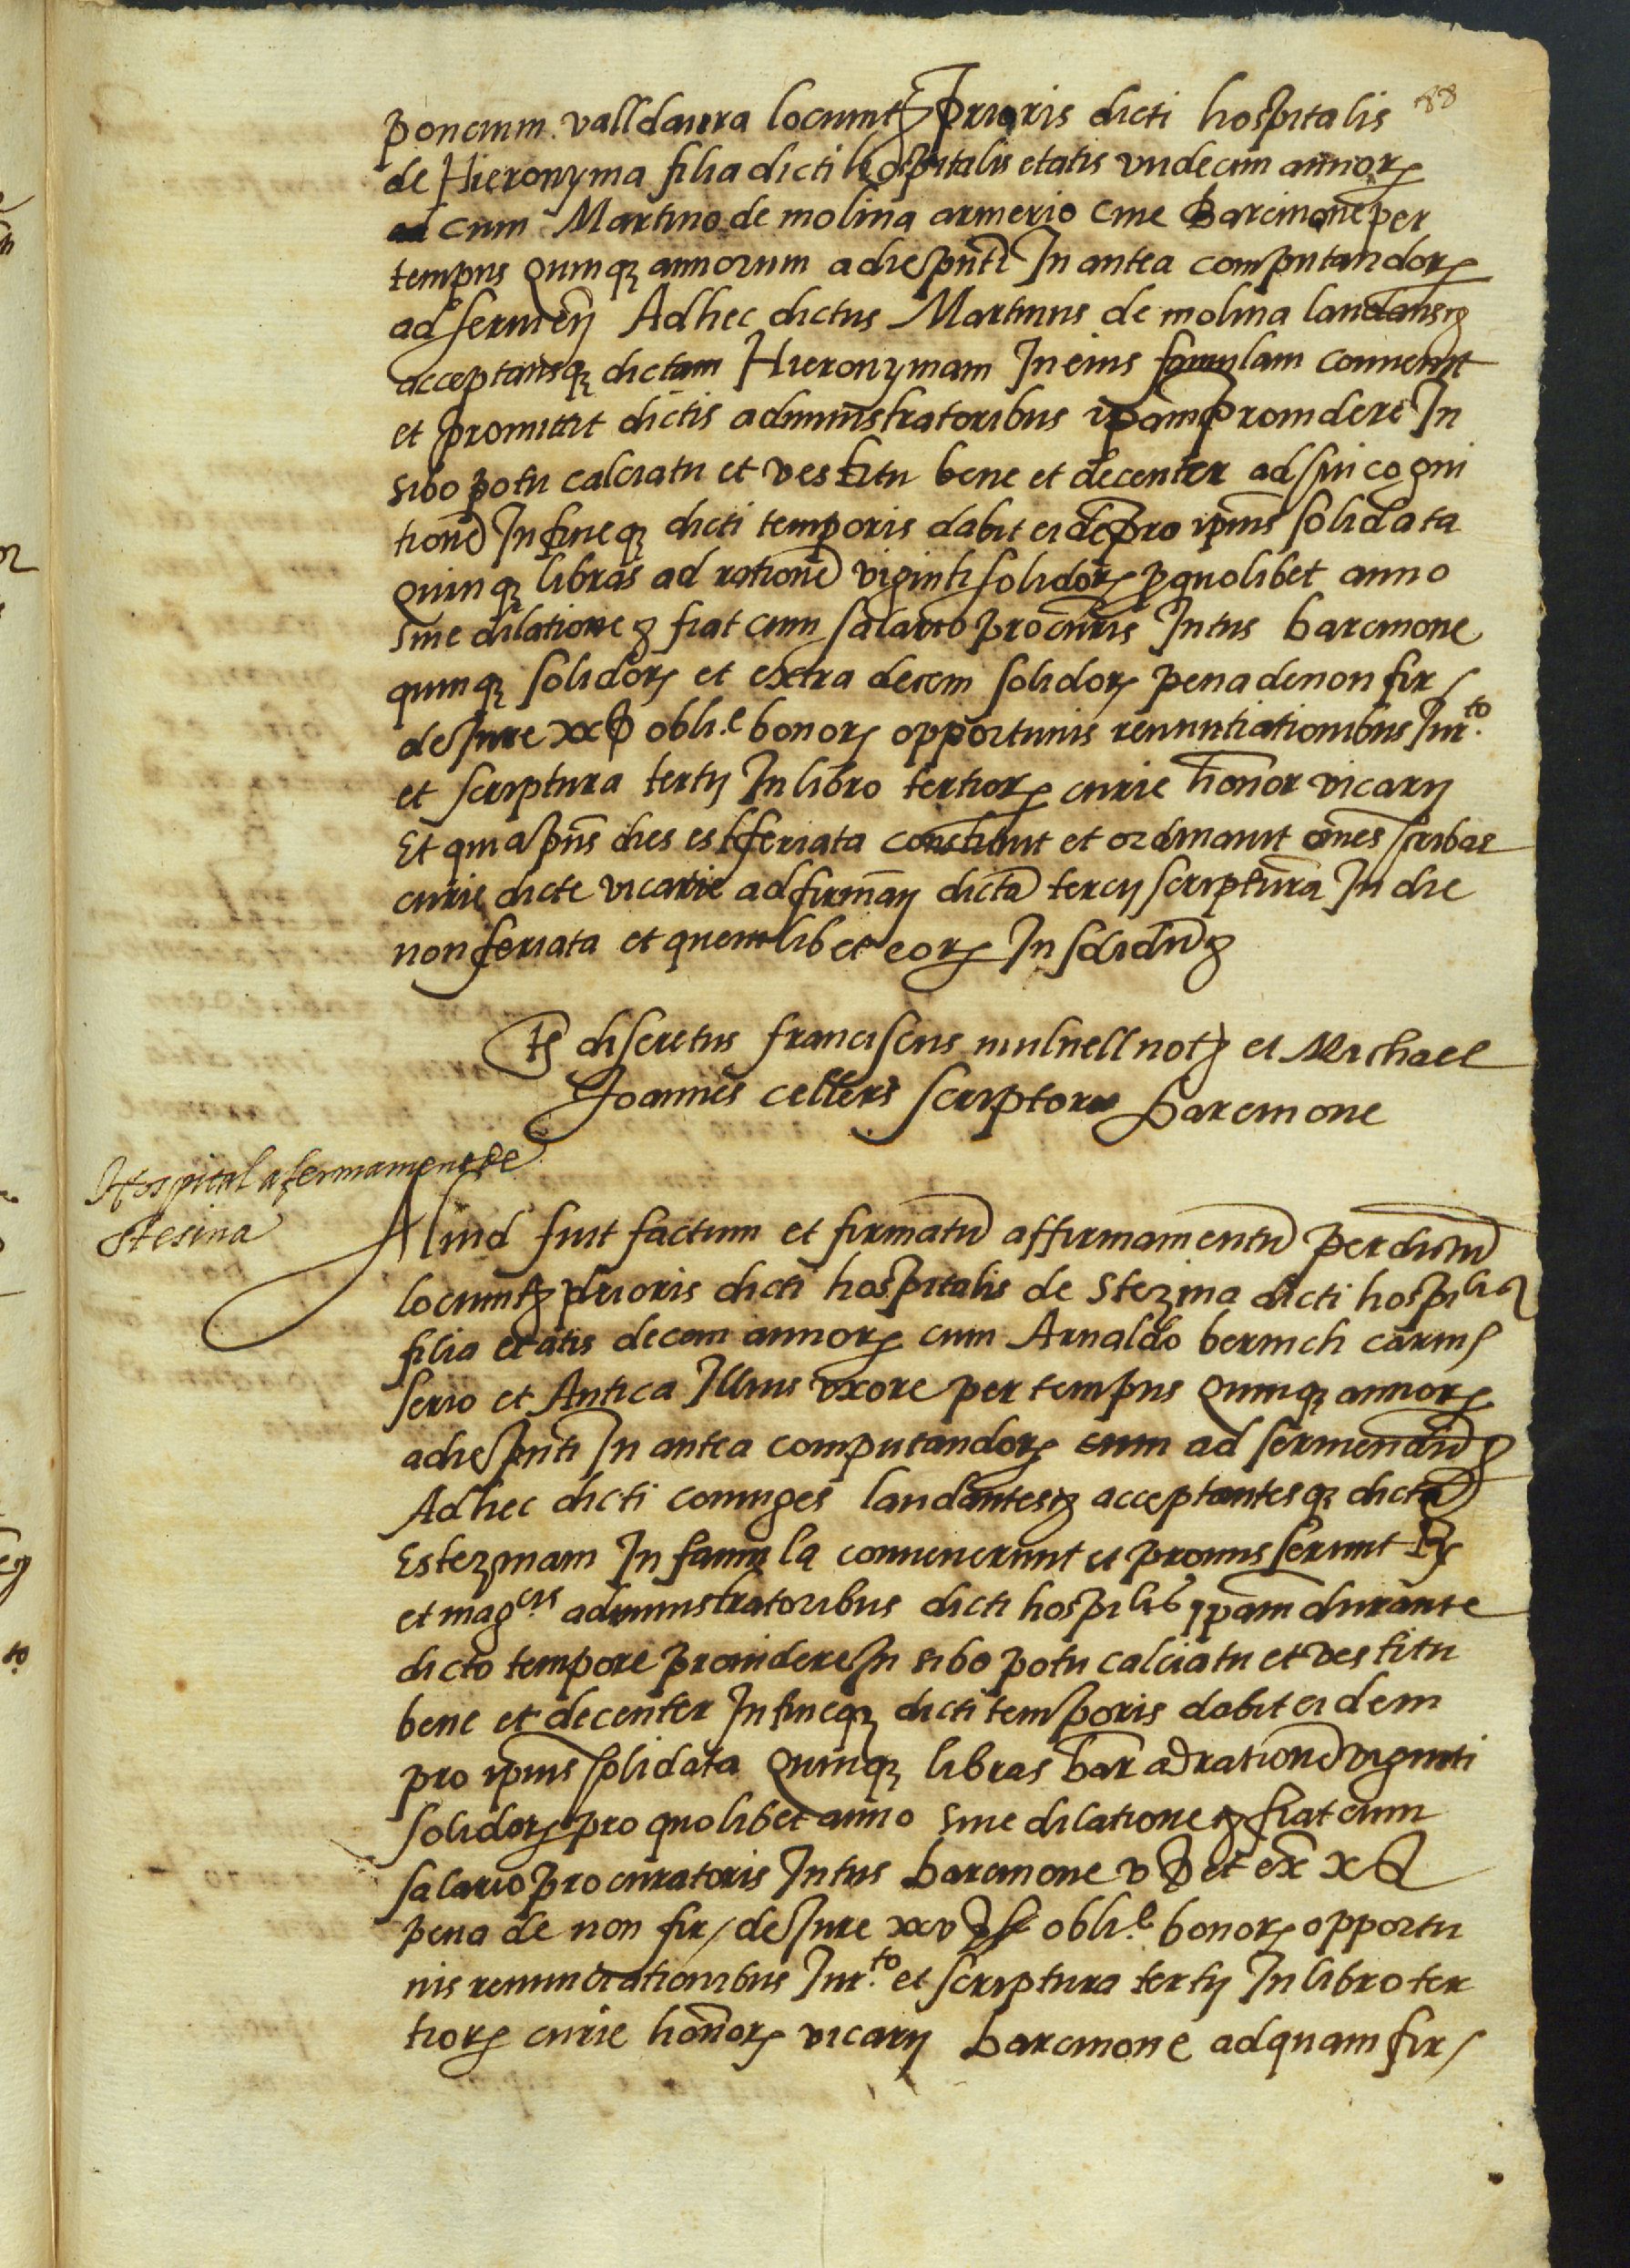 88
poncium valldaura locumt prioris dicti hospitalis
de Hieronyma filia dicti hospitalis etatis undecim annor
cum Martino de molina armerio cive Barcinone per
tempus quinq annorum a die pnti In antea computandor
ad servien Ad hec dictus Martinus de molina laudansq
acceptansq dictam Hieronymam In eius famulam convenit
et promittit dictis administratoribus ipam providere In
sibo potu calciatu et vestitu bene et decenter ad sui cogni
tione In fineq dicti temporis dabit eide pro ipius solidata
quinq libras ad ratione viginti solidor p quolibet anno
sine dilatione fiat cum salario procuris Intus barcinone
quinq solidor et extra decem solidor pena de non fir
de Jure xx obli.e bonor opportunis renuntiationibus Jur.to
et scriptura tertij In libro tertior curie honor vicarij
Et quia pns dies est feriata constituit et ordinavit omes scribas
curie dicte vicarie ad firman dicta tercij scriptura In die
non feriata et quemlibet eor In solidu
Ts discretus franciscus mulnell not et Michael
Joannes cellers scriptor barcinone
Hospital afermament de
Stesina
Aliud fuit factum et firmatu affirmamentu per dictu
locumt prioris dicti hospitalis de Stezina dicti hospilis
filia etatis decem annor cum Arnaldo berinch carnis
serio et Antica Illius uxore per tempus quinq annor
a die pnti In antea computandor cum ad serviendu
Ad hec dicti coniuges laudantesq acceptantesq dicta
Estezinam In famula convenerunt et promisserunt
et mag.cis administratoribus dicti hospilis ipam durante
dicto tempore providere In sibo potu calciatu et vestitu
bene et decenter In fineq dicti temporis dabit eidem
pro ipius solidata quinq libras bar ad ratione viginti
solidor pro quolibet anno sine dilatione fiat cum
salario procuratoris Intus barcinone v et ex x
pena de non fir de Jure xxv obli.e bonor opportu
nis renunciationibus Jur.to et scriptura tertij In libro ter
tior curie honor vicarij barcinone ad quam fir